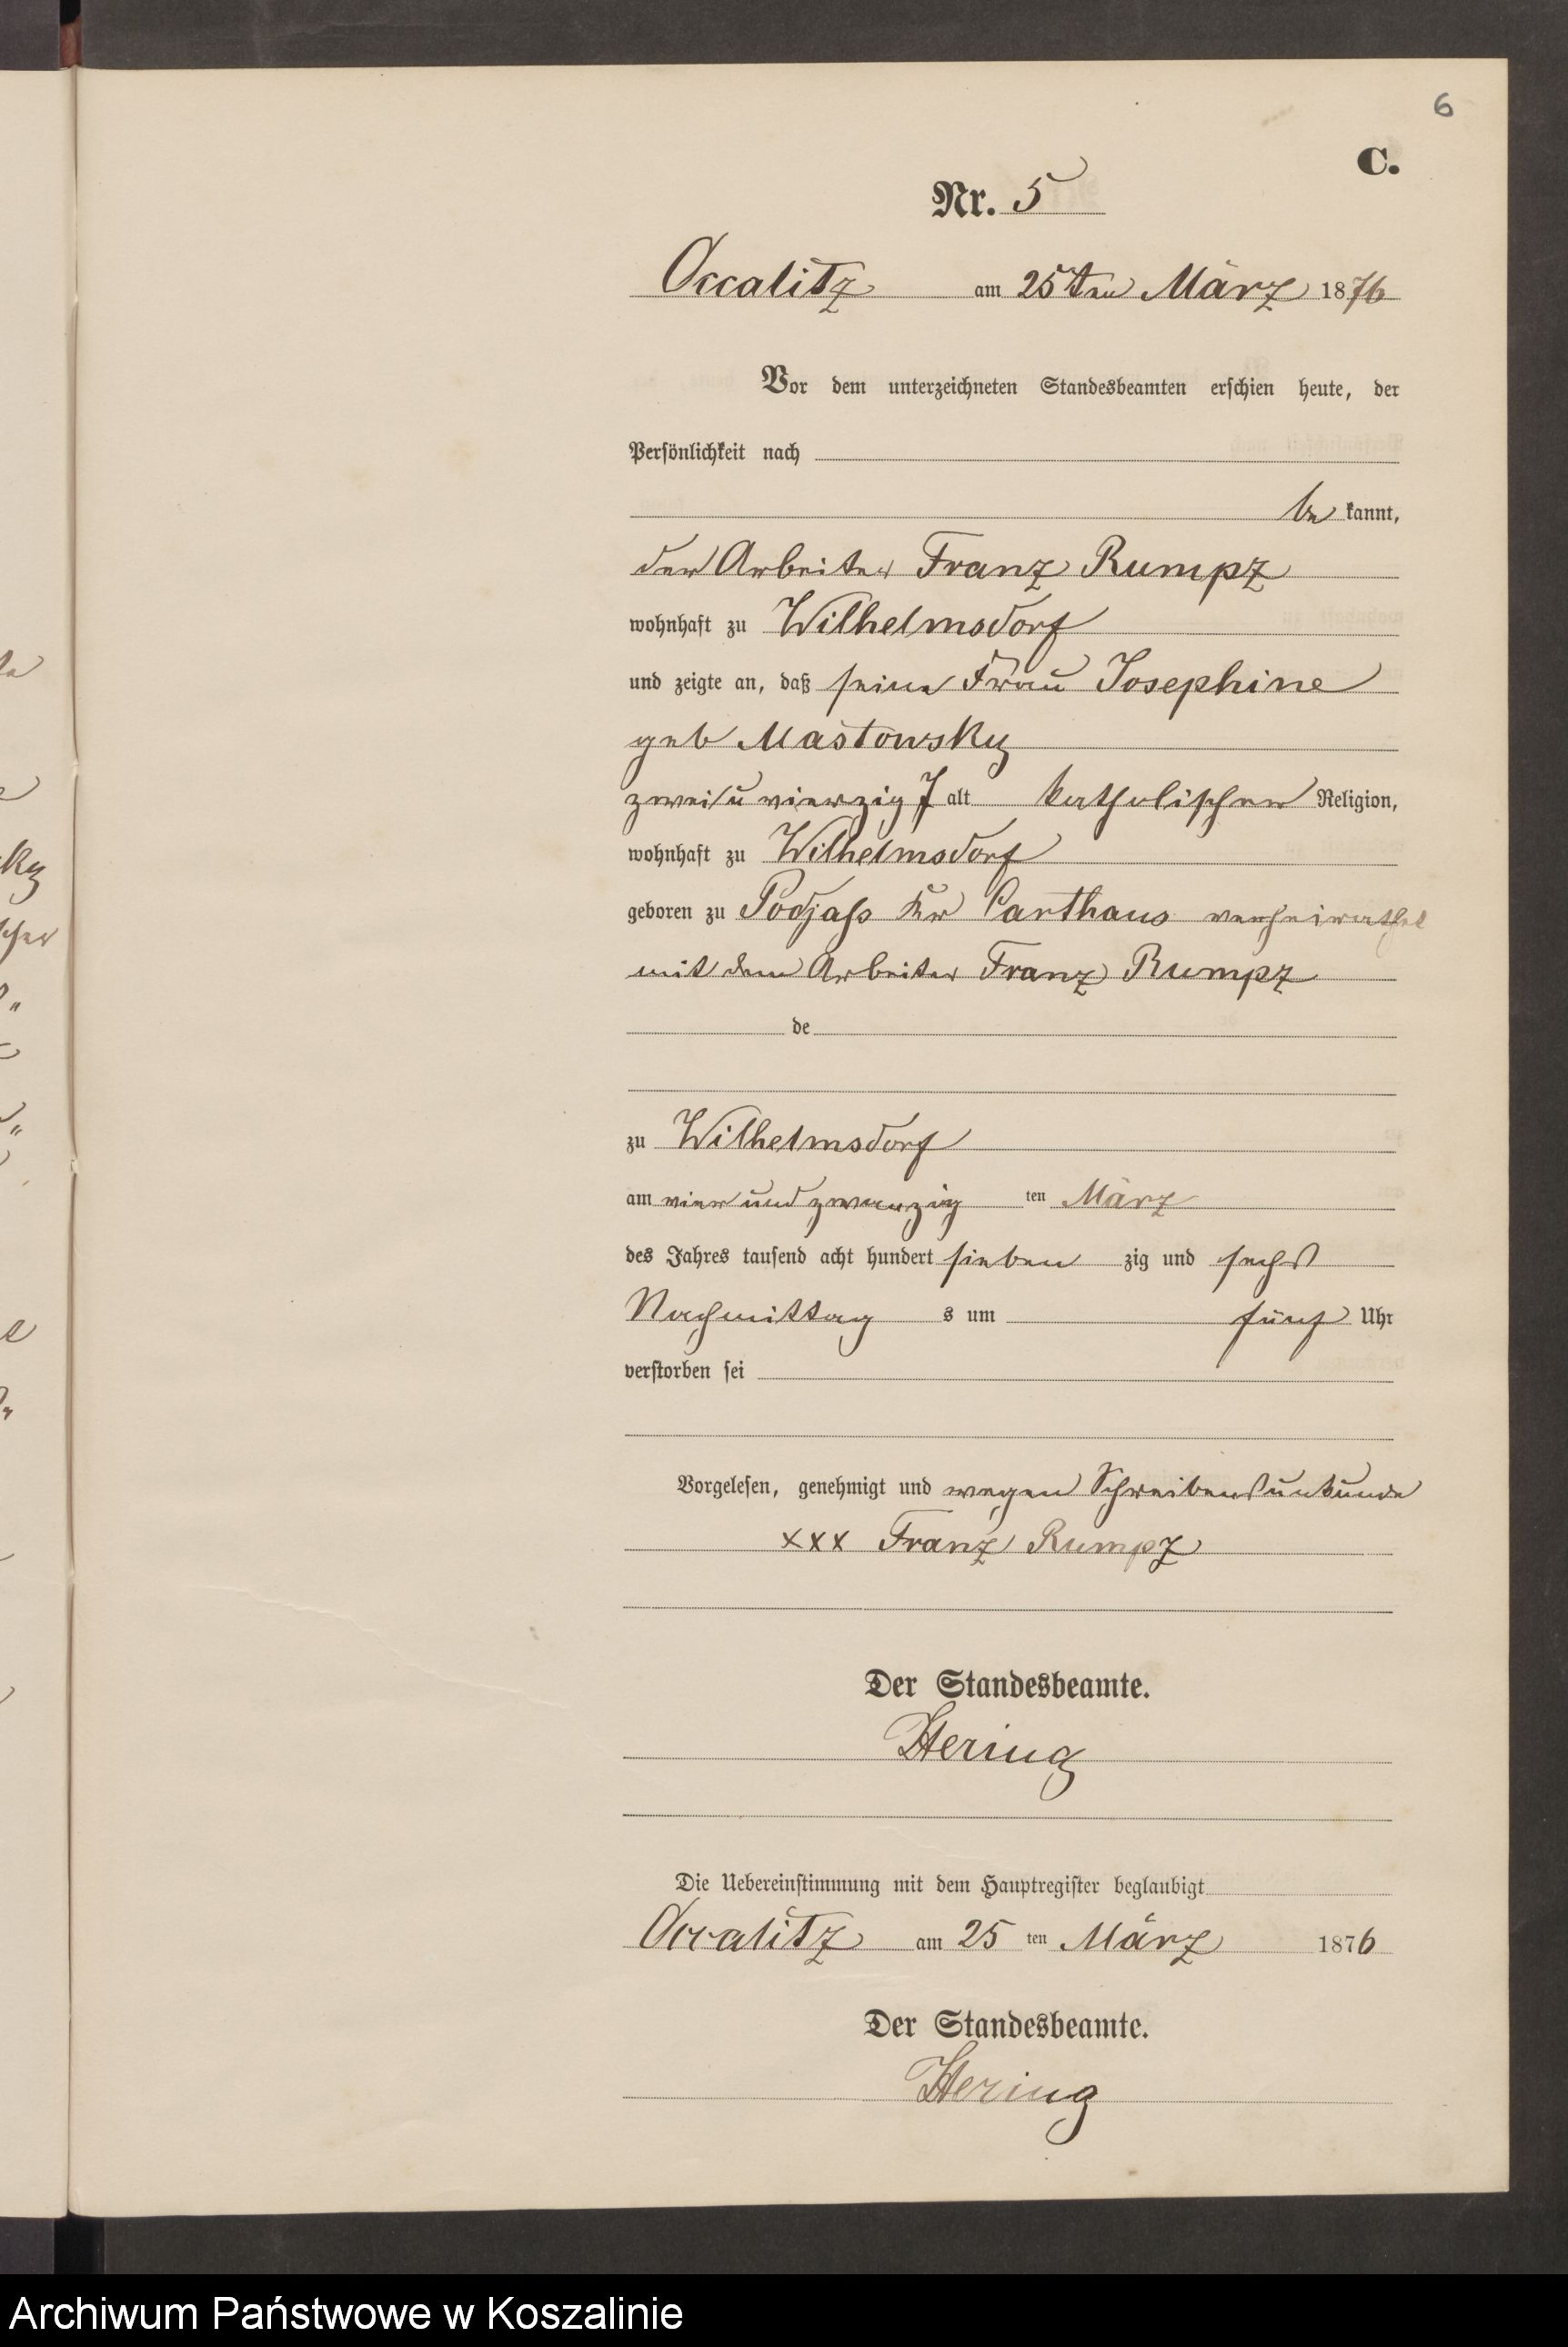 6
C.
Nr. 5
Occalitz am 25ten März 1876
Vor dem unterzeichneten Standesbeamten erschien heute, der
Persönlichkeit nach
be kannt,
der Arbeiter Franz Rumpz
wohnhaft zu Wilhelmsdorf
und zeigte an, daß seine Frau Josephine
geb Mastowsky
zwei u vierzig J alt katholischer Religion,
wohnhaft zu Wilhelmsdorf
geboren zu Podjass Kr Carthaus verheirathet
mit dem Arbeiter Franz Rumpz
de
zu Wilhelmsdorf
am vier und zwanzig ten März
des Jahres tausend acht hundert sieben zig und sechs
Nachmittag s um fünf Uhr
verstorben sei
Vorgelesen, genehmigt und wegen Schreibensunkunde
xxx Franz Rumpz
Der Standesbeamte.
Hering
Die Uebereinstimmung mit dem Hauptregister beglaubigt
Occalitz am 25 ten März 1876
Der Standesbeamte.
Hering
Archiwum Państwowe w Koszalinie